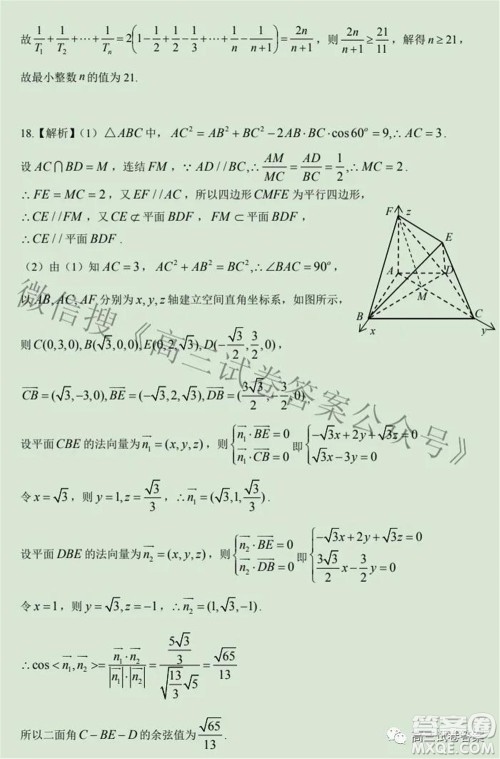 故 1/T₁ + 1/T₂ + ⋯ + 1/Tₙ = 2(1 − 1/2 + 1/2 − 1/3 + ⋯ + 1/n − 1/(n+1)) = 2n/(n+1)，则 2n/(n+1) ≥ 21/11，解得 n ≥ 21，
故最小整数 n 的值为 21.
18.【解析】（1）△ABC 中，AC² = AB² + BC² − 2AB·BC·cos60° = 9,∴ AC = 3.
设 AC∩BD = M，连结 FM，∵ AD // BC,∴ AM/MC = AD/BC = 1/2,∴ MC = 2.
∴ FE = MC = 2，又 EF // AC，所以四边形 CMFE 为平行四边形，
∴ CE // FM，又 CE ⊄ 平面 BDF，FM ⊂ 平面 BDF，
∴ CE // 平面 BDF.
（2）由（1）知 AC = 3，AC² + AB² = BC²,∴ ∠BAC = 90°，
以 AB, AC, AF 分别为 x, y, z 轴建立空间直角坐标系，如图所示，
则 C(0,3,0), B(√3,0,0), E(0,2,√3), D(−√3/2, 3/2, 0)，
CB = (√3,−3,0), BE = (−√3,2,√3), DB = (3√3/2, −3/2, 0)
设平面 CBE 的法向量为 n₁ = (x, y, z)，则 {n₁·BE = 0 n₁·CB = 0 即 {−√3x + 2y + √3z = 0 √3x − 3y = 0
令 x = √3，则 y = 1, z = √3/3，∴ n₁ = (√3, 1, √3/3).
设平面 DBE 的法向量为 n₂ = (x, y, z)，则 {n₂·BE = 0 n₂·DB = 0 即 {−√3x + 2y + √3z = 0 3√3/2 x − 3/2 y = 0
令 x = 1，则 y = √3, z = −1，∴ n₂ = (1, √3, −1).
∴ cos < n₁, n₂ >= n₁·n₂/|n₁||n₂| = (5√3/3)/(√(13/3)√5) = √65/13
所以二面角 C − BE − D 的余弦值为 √65/13.
F
z
E
A
D
M
B
C
x
y
微信搜《高三试卷答案公众号》
高三试卷答案
答案圈
MXQE.COM